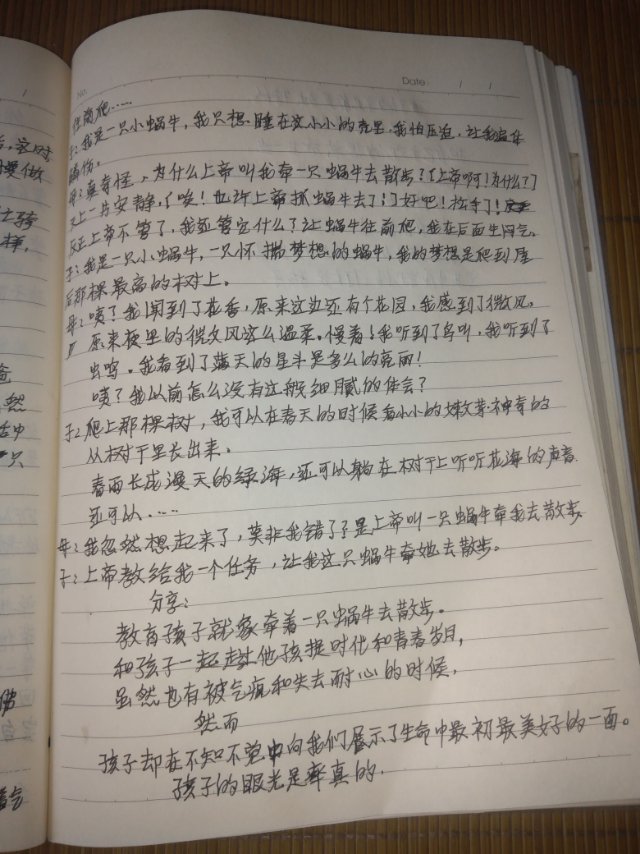 No.
Date / /
往前爬……
子：我是一只小蜗牛，我只想睡在这小小的壳里，我怕压迫，让我遍体
鳞伤。
母：真奇怪，为什么上帝叫我牵一只蜗牛去散步？(上帝啊！为什么？)
天上一片安静，(唉！也许上帝抓蜗牛去了)(好吧！松手了！)
反正上帝不管了，我还管它什么？让蜗牛往前爬，我在后面生闷气。
子：我是一只小蜗牛，一只怀揣梦想的蜗牛，我的梦想是爬到屋
后那棵最高的树上。
母：咦？我闻到了花香，原来这边还有个花园，我感到了微风，
原来夜里的微风这么温柔。慢着！我听到了鸟叫，我听到了
虫鸣。我看到了满天的星斗是多么的亮丽！
咦？我以前怎么没有这般细腻的体会？
子：爬上那棵树，我可以在春天的时候看小小的嫩芽神奇的
从树干里长出来。
春雨长成漫天的绿海，还可以躺在树干上听听花海的声音
还可以……
母：我忽然想起来了，莫非我错了？是上帝叫一只蜗牛牵我去散步。
子：上帝教给我一个任务，让我这只蜗牛牵她去散步。
分享：
教育孩子就象牵着一只蜗牛去散步。
和孩子一起走过他孩提时代和青春岁月，
虽然也有被气疯和失去耐心的时候，
然而
孩子却在不知不觉中向我们展示了生命中最初最美好的一面。
孩子的眼光是率真的.